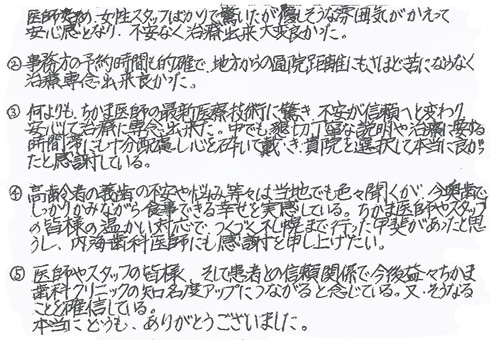 医師始め、女性スタッフばかりで驚いたが優しそうな雰囲気がかえって
安心感となり、不安なく治療出来大変良かった。
② 事務方の予約時間も的確で、地方からの通院距離にもさほど苦にならなく
治療専念出来良かった。
③ 何よりも、ちかま医師の最新医療技術に驚き 不安が信頼へと変わり
安心して治療に専念出来た。中でも懇切丁寧な説明や治療に要する
時間等にも十分配慮し心を砕いて戴き、貴院を選択して本当に良かっ
たと感謝している。
④ 高齢者の義歯の不安や悩み等々は当地でも色々聞くが、今奥歯で
しっかりかみながら食事できる幸せを実感している。ちかま医師やスタッフ
の皆様の温かい対応で、つくづく札幌まで行った甲斐があったと思
うし、内海歯科医師にも感謝を申し上げたい。
⑤ 医師やスタッフの皆様、そして患者との信頼関係で今後益々ちかま
歯科クリニックの知名度アップにつながると念じている。又、そうなる
ことを確信している。
本当にどうも、ありがとうございました。